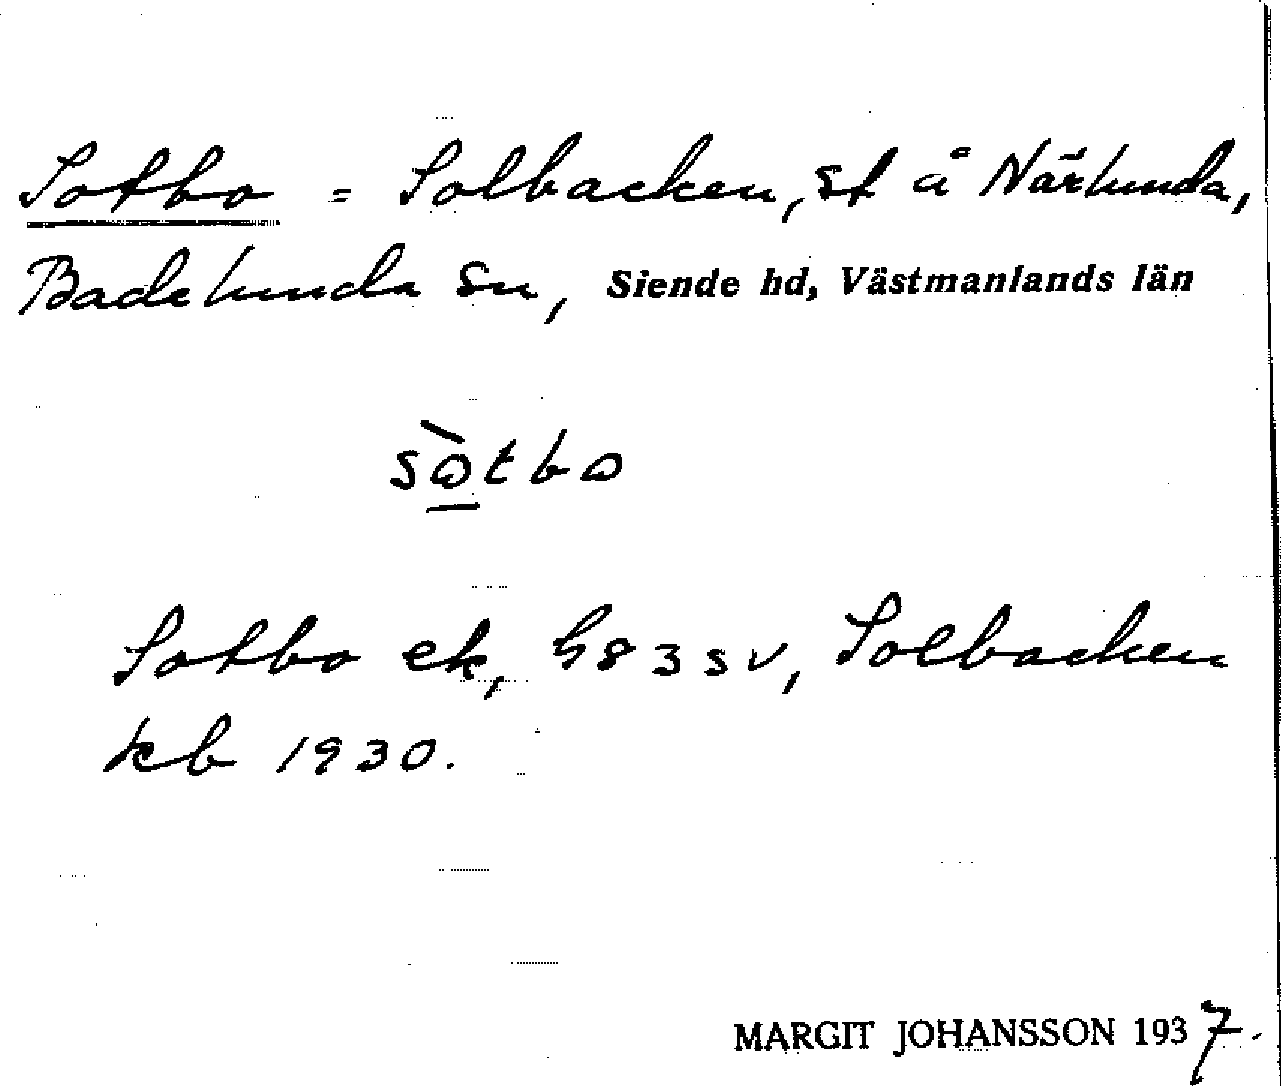 Sotbo = Solbacken, st å Närlunda,
Badelunda sn, Siende hd, Västmanlands län
sὼ̲tbω
Sotbo ek, 983 sv, Solbacken
kb 1930.
MARGIT JOHANSSON 1937.